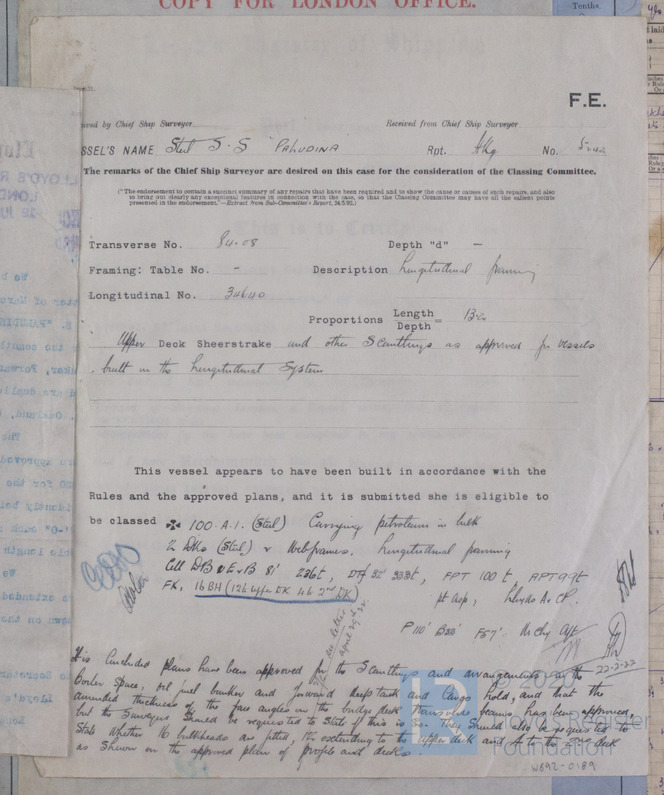 COPY FOR LONDON OFFICE.
Tenths.
F.E.
ived by Chief Ship Surveyor
Received from Chief Ship Surveyor
SSEL'S NAME Steel S.S PALUDINA Rpt. Hkg No. 5242
The remarks of the Chief Ship Surveyor are desired on this case for the consideration of the Classing Committee.
("The endorsement to contain a succinct summary of any repairs that have been required and to show the cause or causes of such repairs, and also
to bring out clearly any exceptional features in connection with the case, so that the Classing Committee may have all the salient points
presented in the endorsement."—Extract from Sub-Committee's Report, 24/5/92.)
Transverse No. 84.08 Depth "d" –
Framing: Table No. – Description Longitudinal framing
Longitudinal No. 34640
Proportions Length/Depth = 13.2
Upper Deck Sheerstrake and other Scantlings as approved for vessels
built on the Longitudinal System
This vessel appears to have been built in accordance with the
Rules and the approved plans, and it is submitted she is eligible to
be classed ✠ 100.A.1. (Steel) Carrying petroleum in bulk
2 Dks (Steel) & Webframes. Longitudinal framing
Cell DB 81' 236t, FPT 100t, APT 99t
FK, 16 BH (12 to Upper DK 4 to 2nd DK) pt Asp, Lloyds A & CP.
P 110' F 57' Mchy Aft
See letter
April 29th
22-2-22
It is concluded plans have been approved for the Scantlings and arrangements in the
Boiler Space, oil fuel bunker and forward deep tank and Cargo hold, and that the
amended thickness of the face angles on the bridge deck transverse beams has been approved,
but the Surveyors should be requested to state if this is so. They should also be requested to
State whether 16 bulkheads are fitted, 12 extending to the upper deck and 4 to the 2nd deck
as shewn on the approved plan of profile and decks
© 2020
Lloyd's Register
Foundation
W692-0189